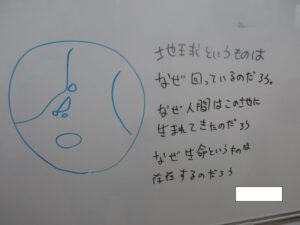 地球というものは
なぜ回っているのだろう。
なぜ人間はこの世に
生まれてきたのだろう
なぜ生命というものは
存在するのだろう